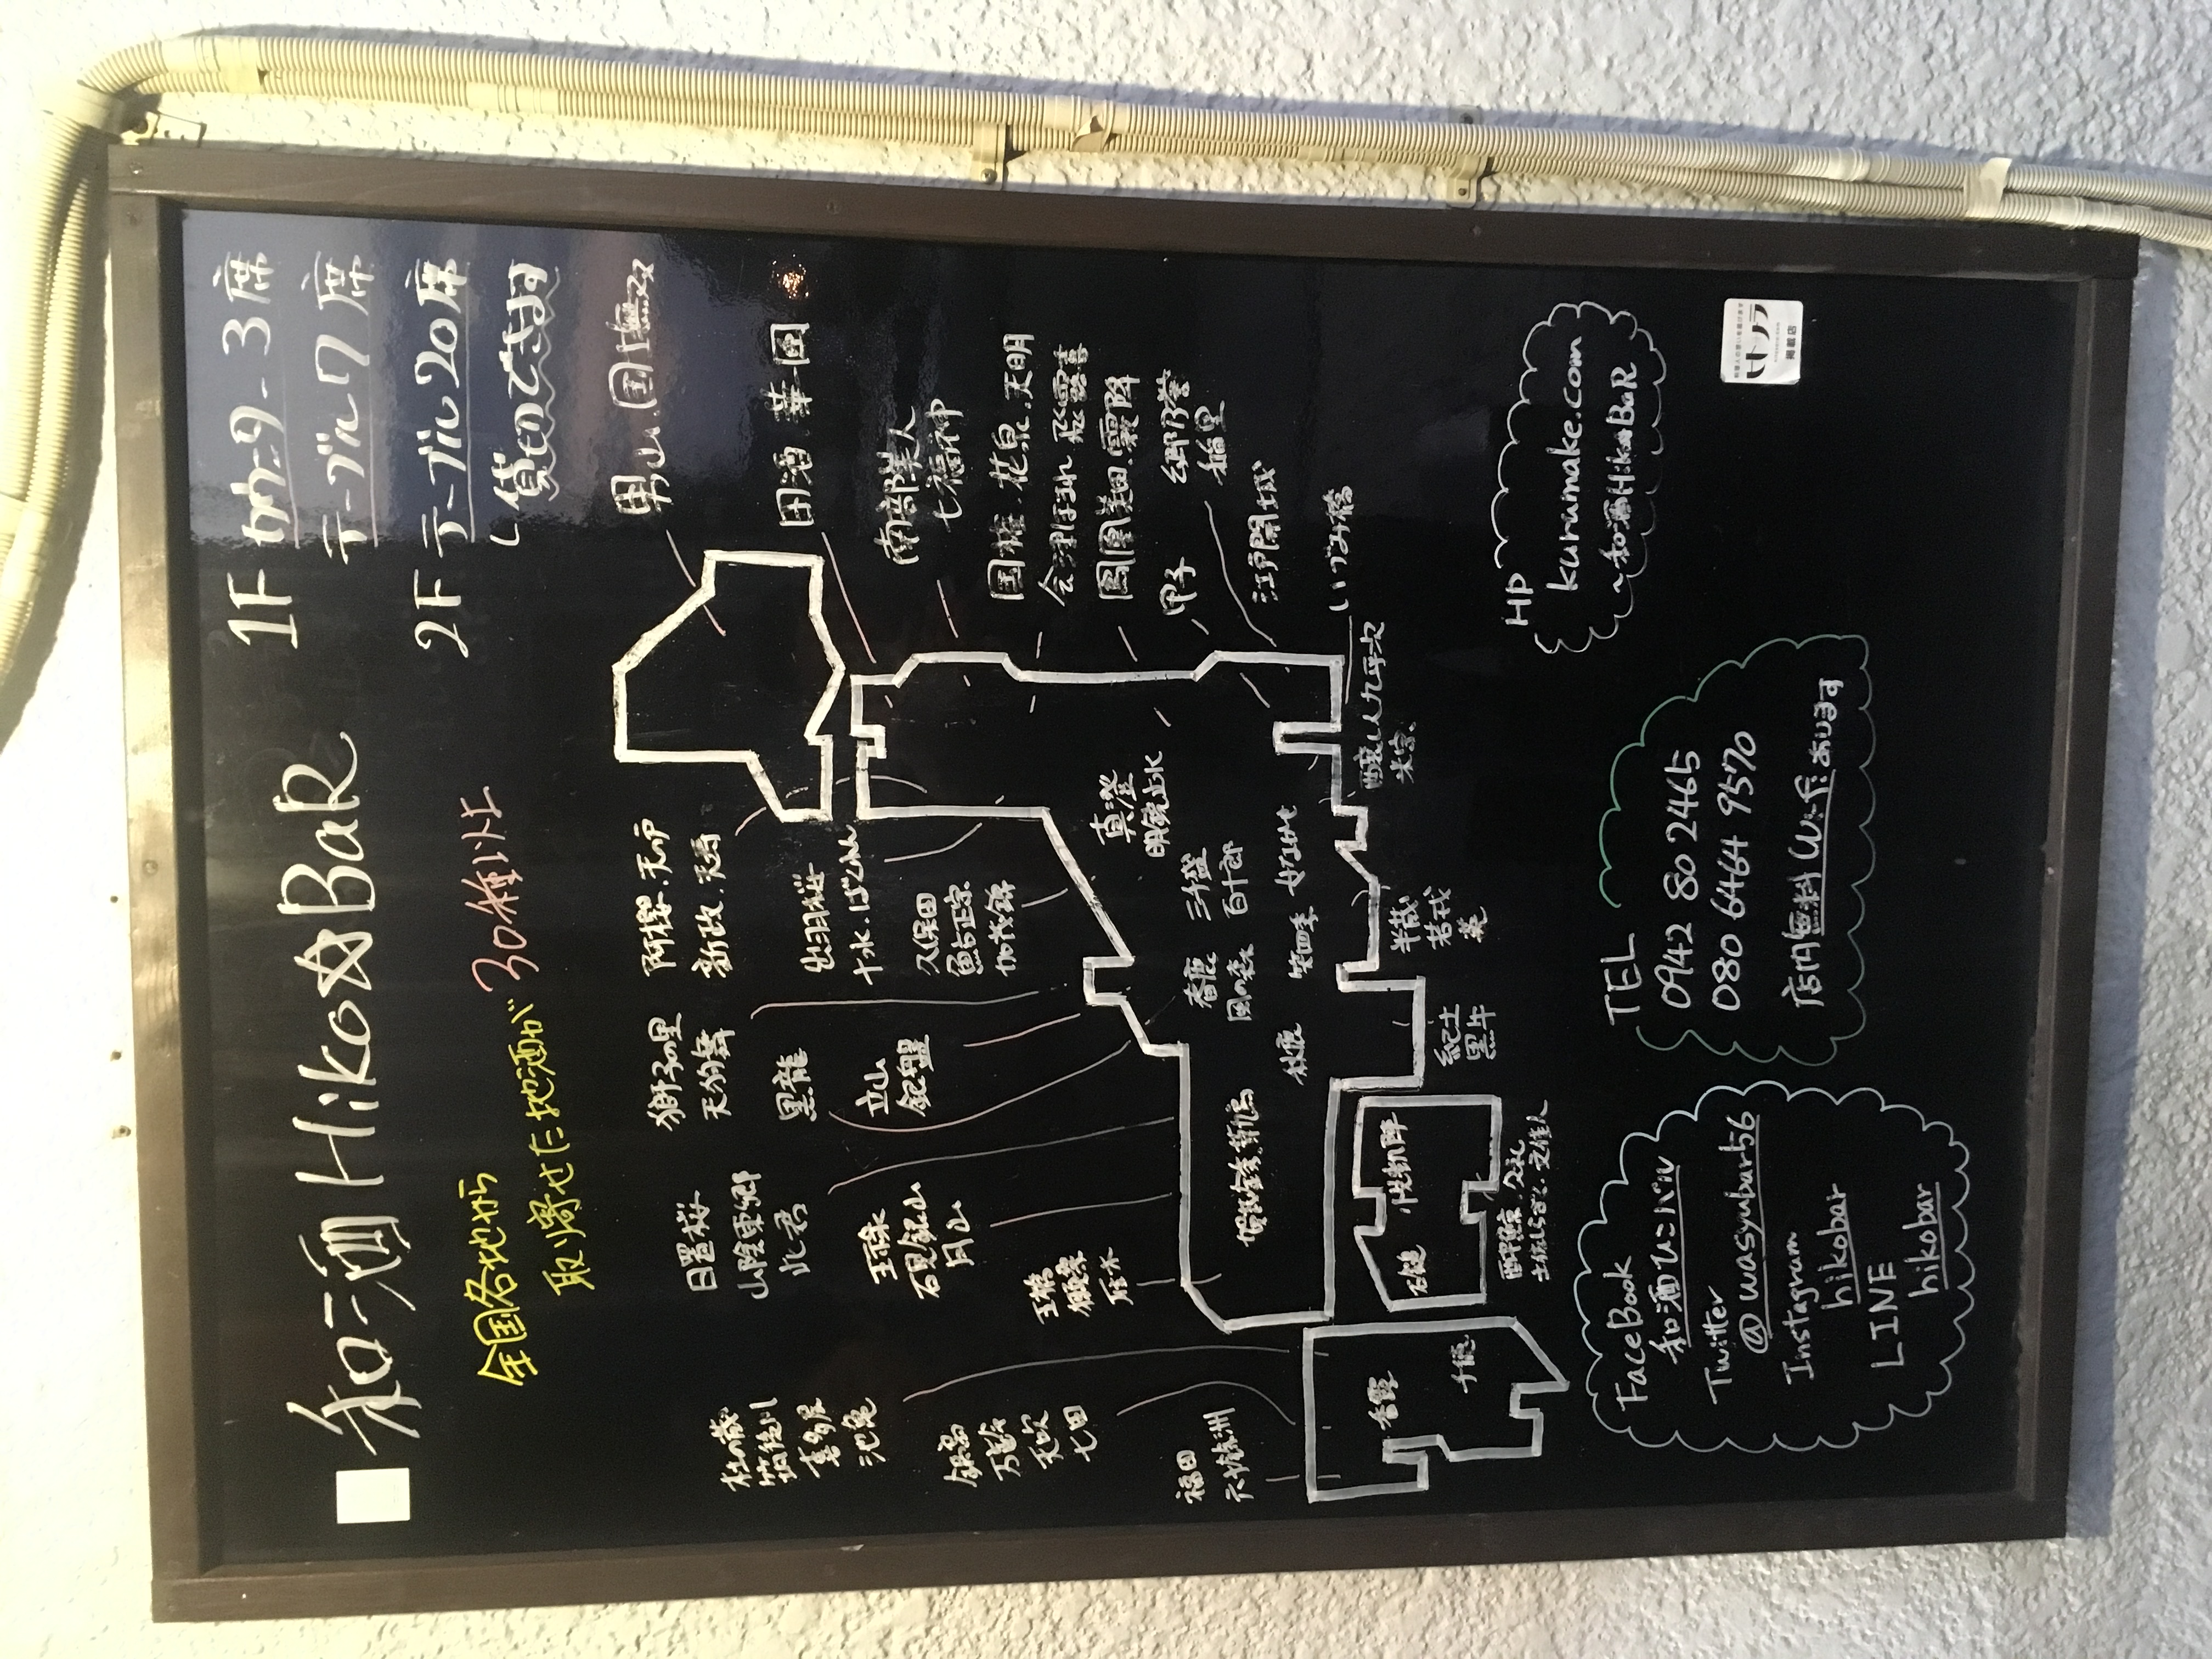 和酒 Hiko☆BaR
1F カウンター 3席
テーブル 7席
2F テーブル 20席
貸切できます
全国各地から
取り寄せた地酒が 30種以上
男山 国士無双
田酒 華一風
南部美人
七福神
国権 花泉 天明
会津ほまれ 飛露喜
鳳凰美田 霧降
甲子
郷乃誉
稲里
江戸開城
いづみ橋
阿櫻 天の戸
新政 天寿
出羽桜
十水 ばくれん
久保田
鮎正宗
加茂錦
獅子の里
天狗舞
黒龍
立山
銀盤
日置桜
山陰東郷
此君
王祿
石見銀山
月山
五橋
獺祭
雁木
杜の蔵
筑後川
喜多屋
池亀
鍋島
万齢
天吹
七田
福田
六十餘洲
真澄
明鏡止水
春鹿
風の森
三千盛
百十郎
賀茂金秀
秋鹿
笑四季
醸し人九平次
米宗
半蔵
若戎
英
紀土
黒牛
香露
千徳
石鎚
悦凱陣
酔鯨 久礼
土佐しらぎく 文佳人
HP
kurumake.com
~和酒Hiko☆BaR
FaceBook
和酒ひこバル
Twitter
@wasyubar56
Instagram
hikobar
LINE
hikobar
TEL
0942 80 2465
080 6464 9570
店内無料 Wi-Fi あります
ヒトサラ
掲載店